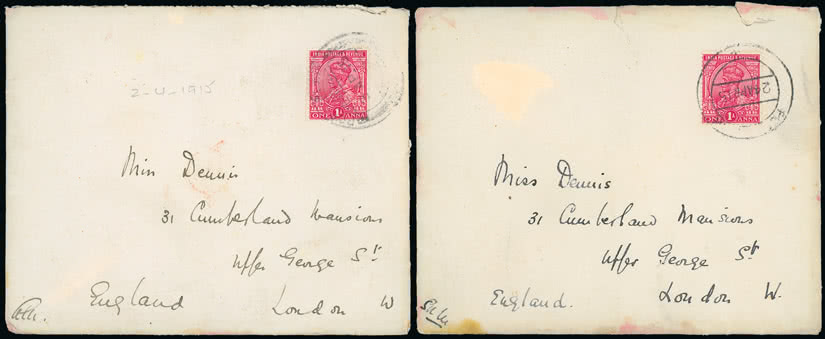 INDIA POSTAGE & REVENUE
1A
ONE ANNA
2-4-1915
Miss Dennis
31 Cumberland Mansions
Upper George St
England
London W
INDIA POSTAGE & REVENUE
1A
ONE ANNA
24 AP 15
Miss Dennis
31 Cumberland Mansions
Upper George St
England.
London W.